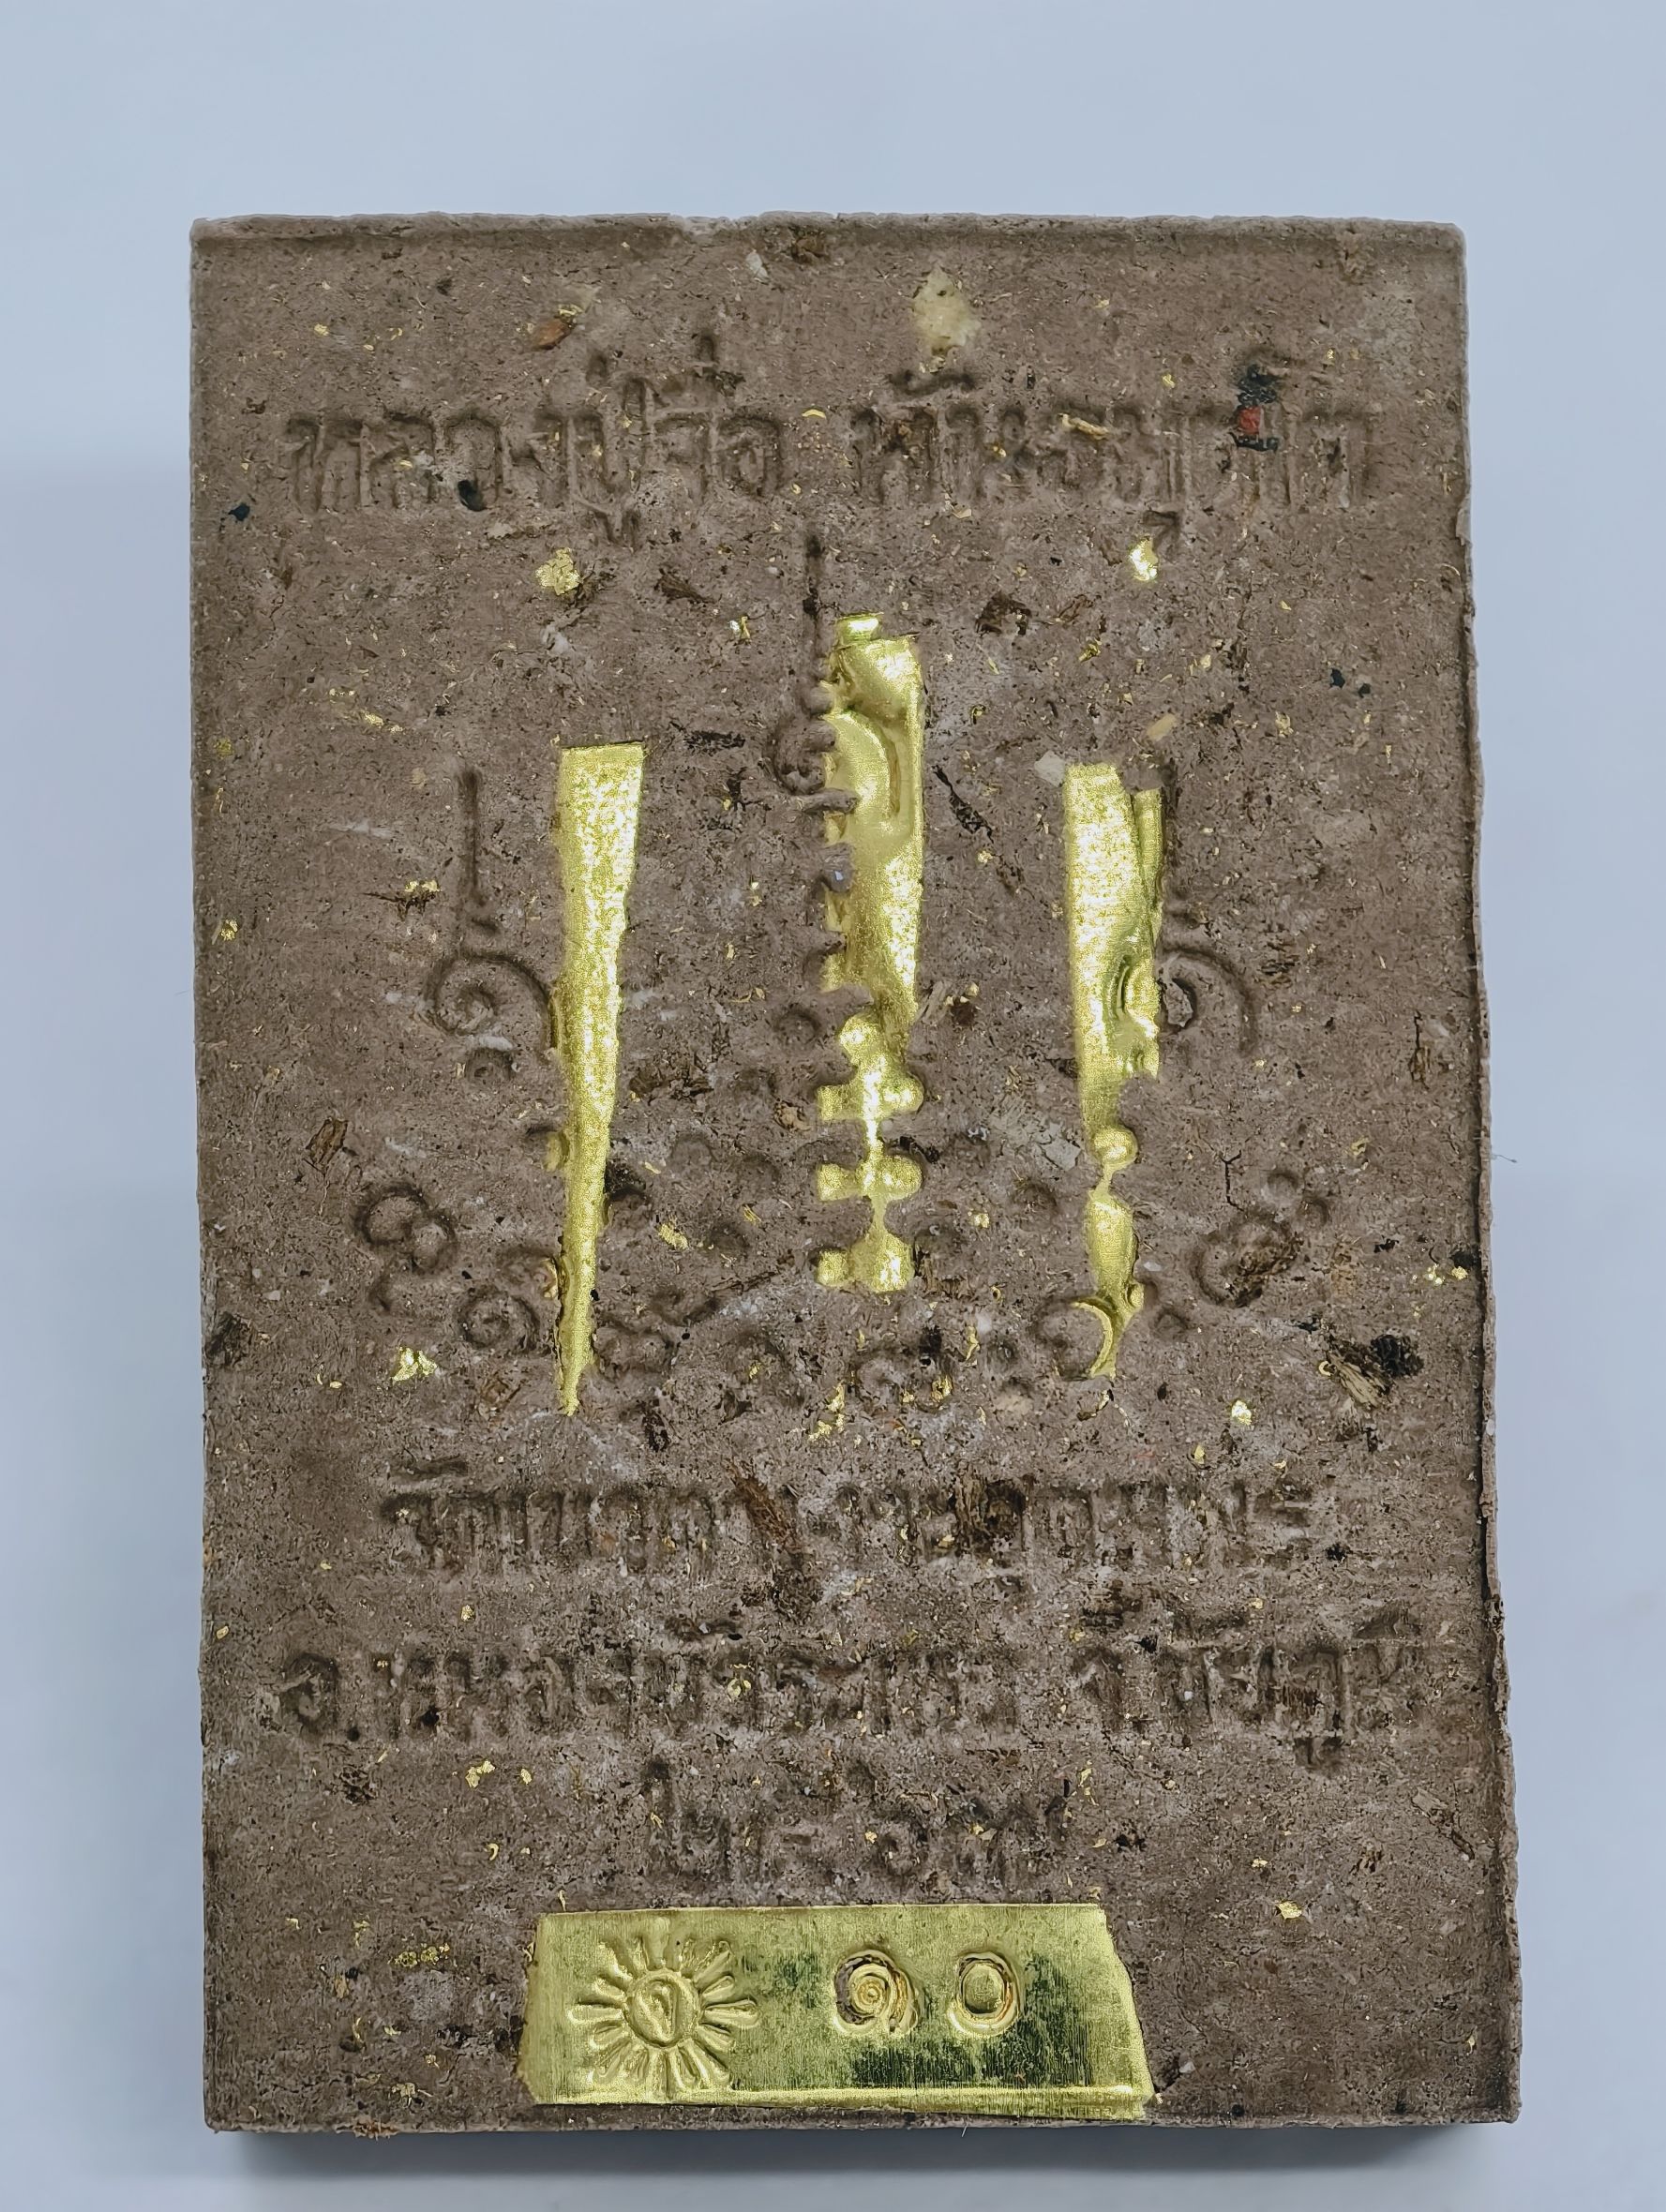 หลวงปู่จื่อ
วัดเขาตาเงาะอุดมพร
อ.หนองบัวระเหว จ.ชัยภูมิ
๒๕๖๗
๑๐